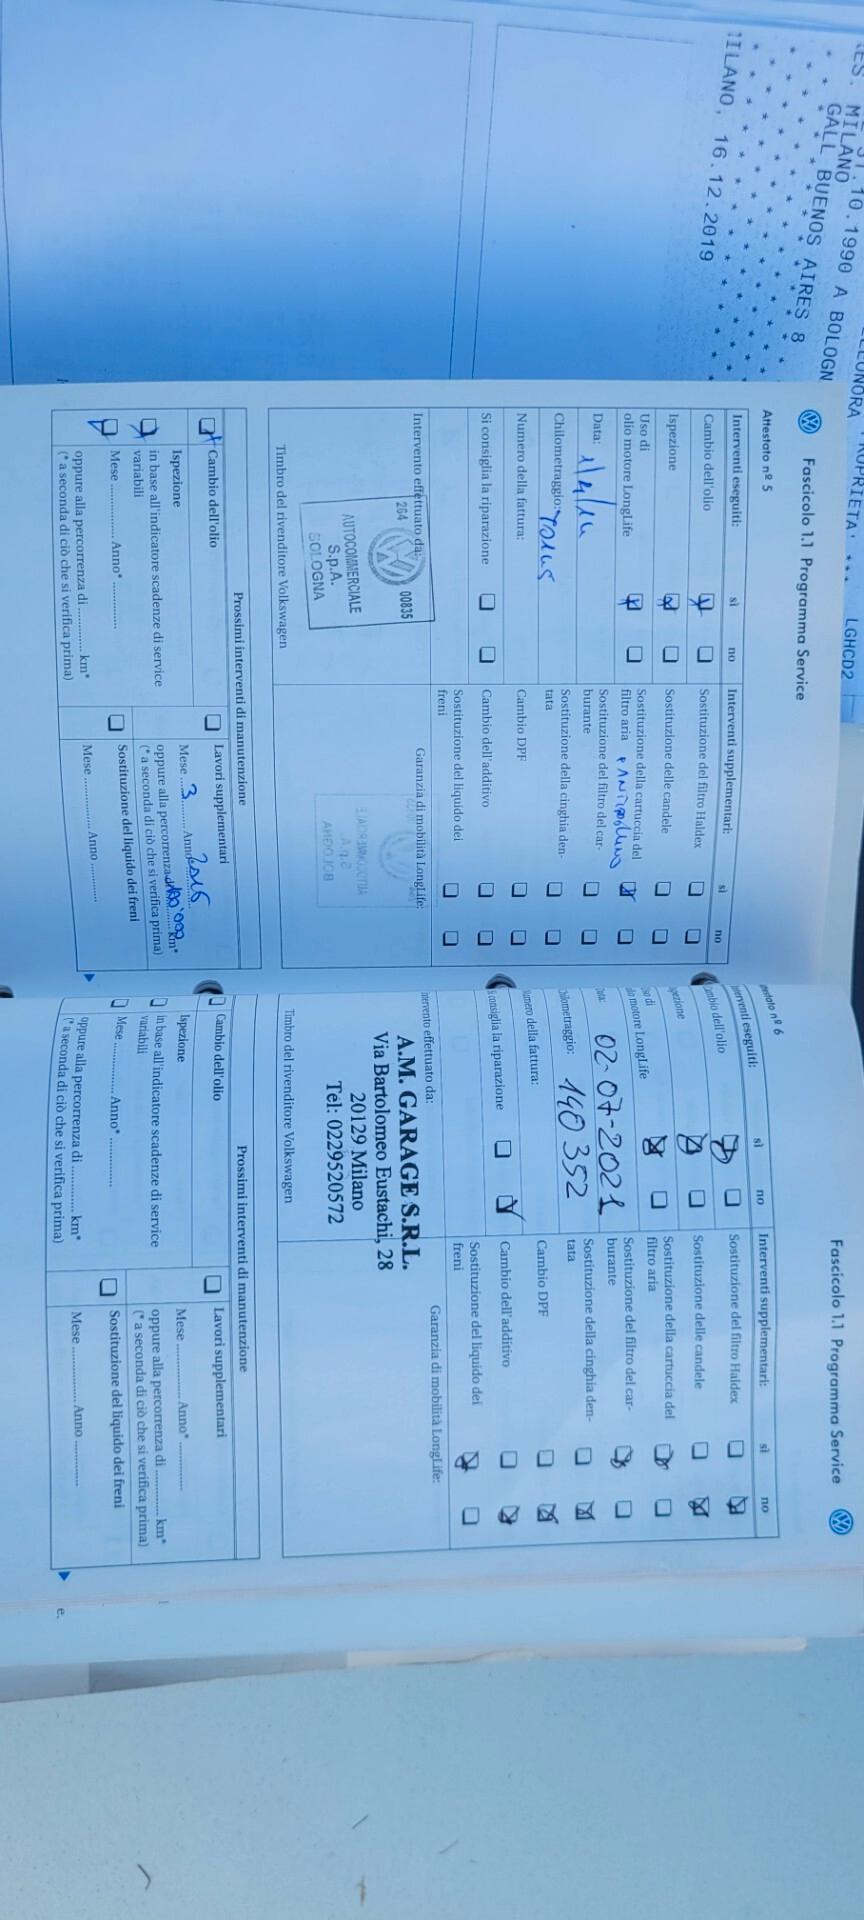 .10.1990 A BOLOGN
MILANO
GALL BUENOS AIRES 8
MILANO, 16.12.2019
PROPRIETA' ***
LGHCD2
Fascicolo 1.1 Programma Service
Attestato nº 5
Interventi eseguiti: sì no
Cambio dell'olio
Ispezione
Uso di
olio motore LongLife
Data:
Chilometraggio:
Numero della fattura:
Si consiglia la riparazione
Interventi supplementari: sì no
Sostituzione del filtro Haldex
Sostituzione delle candele
Sostituzione della cartuccia del
filtro aria
Sostituzione del filtro del car-
burante
Sostituzione della cinghia den-
tata
Cambio DPF
Cambio dell'additivo
Sostituzione del liquido dei
freni
Intervento effettuato da:
264 00835
AUTOCOMMERCIALE
S.p.A.
BOLOGNA
Timbro del rivenditore Volkswagen
Garanzia di mobilità LongLife:
Prossimi interventi di manutenzione
Cambio dell'olio
Ispezione
in base all'indicatore scadenze di service
variabili
Mese ............ Anno* ............
oppure alla percorrenza di ............ km*
(* a seconda di ciò che si verifica prima)
Lavori supplementari
Mese ...3... Anno*
oppure alla percorrenza km*
(* a seconda di ciò che si verifica prima)
Sostituzione del liquido dei freni
Mese ............ Anno ............
Fascicolo 1.1 Programma Service
nº 6
Interventi eseguiti: sì no
Cambio dell'olio
Ispezione
Uso di
olio motore LongLife
Data: 02-07-2021
Chilometraggio: 140352
Numero della fattura:
Si consiglia la riparazione
Interventi supplementari: sì no
Sostituzione del filtro Haldex
Sostituzione delle candele
Sostituzione della cartuccia del
filtro aria
Sostituzione del filtro del car-
burante
Sostituzione della cinghia den-
tata
Cambio DPF
Cambio dell'additivo
Sostituzione del liquido dei
freni
Intervento effettuato da:
A.M. GARAGE S.R.L.
Via Bartolomeo Eustachi, 28
20129 Milano
Tel: 0229520572
Timbro del rivenditore Volkswagen
Garanzia di mobilità LongLife:
Prossimi interventi di manutenzione
Cambio dell'olio
Ispezione
in base all'indicatore scadenze di service
variabili
Mese ............ Anno* ............
oppure alla percorrenza di ............ km*
(* a seconda di ciò che si verifica prima)
Lavori supplementari
Mese ............ Anno* ............
oppure alla percorrenza di ............ km*
(* a seconda di ciò che si verifica prima)
Sostituzione del liquido dei freni
Mese ............ Anno ............